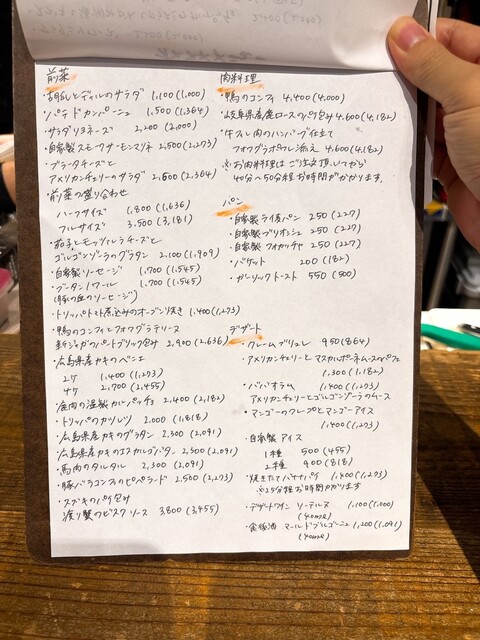 前菜
・胡瓜とディルのサラダ 1,100 (1,000)
・パテドカンパーニュ 1,500 (1,364)
・サラダリヨネーズ 2,200 (2,000)
・自家製スモークサーモンマリネ 2,500 (2,273)
・ブラータチーズと
アメリカンチェリーのサラダ 2,600 (2,364)
・前菜の盛り合わせ
ハーフサイズ 1,800 (1,636)
フルサイズ 3,500 (3,181)
・茄子とモッツァレラチーズと
ゴルゴンゾーラのグラタン 2,100 (1,909)
・自家製ソーセージ 1,700 (1,545)
・ブータンノワール 1,700 (1,545)
(豚の血のソーセージ)
・トリッパのトマト煮込みのオーブン焼き 1,400 (1,273)
・鴨のコンフィとフォワグラテリーヌ
新ジャガのパートブリック包み 2,900 (2,636)
・広島県産カキのベニエ
2ケ 1,400 (1,273)
4ケ 2,700 (2,455)
・鹿肉の温製カルパッチョ 2,400 (2,182)
・トリッパのカツレツ 2,000 (1,818)
・広島県産カキのグラタン 2,300 (2,091)
・広島県産カキのエスカルゴバター 2,300 (2,091)
・馬肉のタルタル 2,300 (2,091)
・豚バラコンフィのピペラード 2,500 (2,273)
・スズキのパイ包み
渡り蟹のビスクソース 3,800 (3,455)
肉料理
・鴨のコンフィ 4,400 (4,000)
・岐阜県産鹿ロースのパイ包み 4,600 (4,182)
・牛フィレ肉のハンバーグ仕立て
フォワグラポワレ添え 4,600 (4,182)
※お肉料理はご注文頂いてから
40分〜50分程お時間がかかります。
パン
・自家製ライ麦パン 250 (227)
・自家製ブリオッシュ 250 (227)
・自家製フォカッチャ 250 (227)
・バケット 200 (182)
・ガーリックトースト 550 (500)
デザート
・クレームブリュレ 950 (864)
・アメリカンチェリーとマスカルポーネムースのパフェ
1,300 (1,182)
・ババオラム 1,400 (1,273)
アメリカンチェリーとゴルゴンゾーラのムース
・マンゴーのクレープとマンゴーアイス
1,400 (1,273)
・自家製アイス
1種 500 (455)
2種 900 (818)
・焼きたてバナナパイ 1,400 (1,273)
※25分程お時間かかります
・デザートワイン ソーテルヌ 1,100 (1,000)
(40ml)
・食後酒 マールドブルゴーニュ 1,200 (1,091)
(40ml)